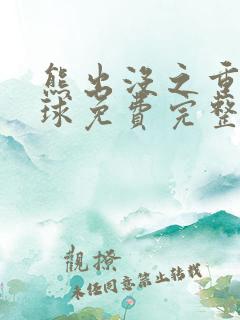 熊出没之重
球免費完整
觀撩
未经同意禁止转载